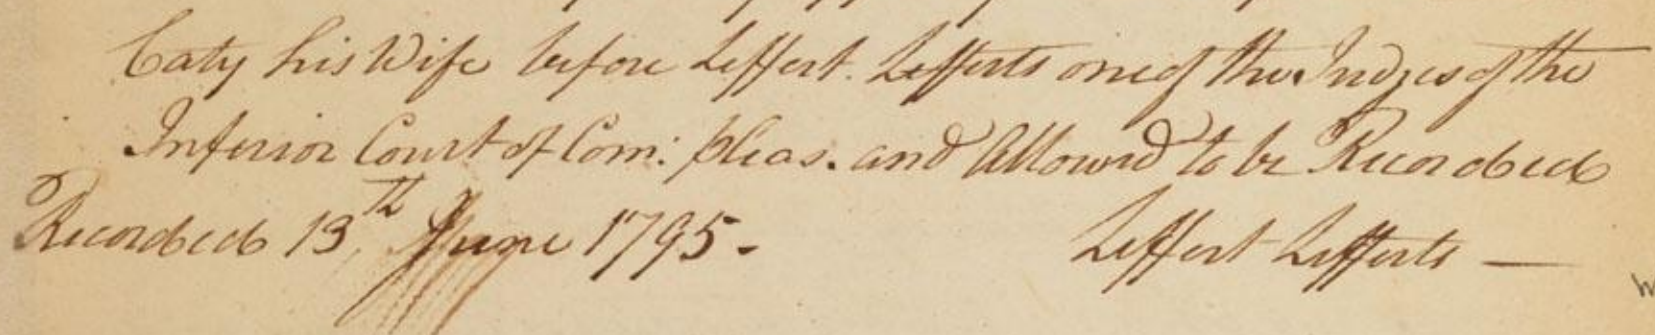 Caty his Wife before Leffert. Lefferts one of the Judges of the
Inferior Court of Com: pleas. and Allowed to be Recorded
Recorded 13th June 1795 -
Leffert Lefferts —